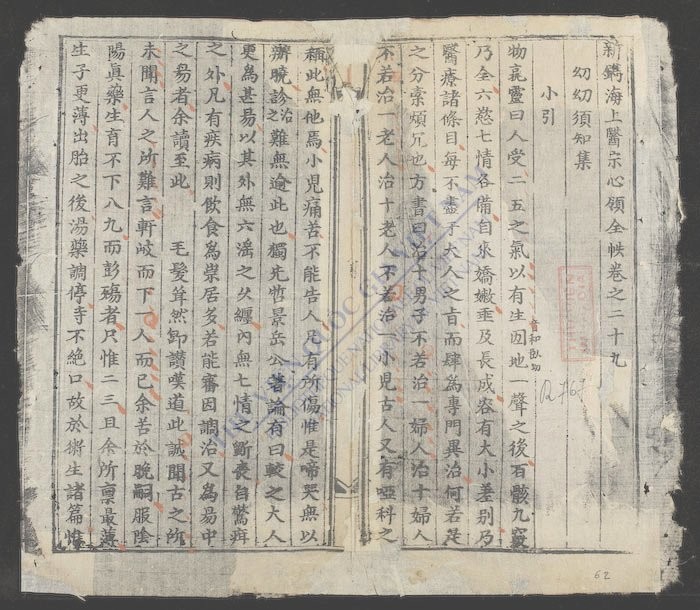 新鐫海上醫宗心領全帙卷之二十九
幼幼須知集
小引
物稟靈曰人受二五之氣以有生因地一聲之後百骸九竅
乃全六慾七情各備自來嬌嫩垂及長成容有大小差別乃
醫療諸條目每不盡于大人之旨而肆為專門異治何若是
之分棄煩冗也方書曰治十男子不若治一婦人治十婦人
不若治一老人治十老人不若治一小兒古人又有啞科之
稱此無他焉小兒痛苦不能告人凡有所傷惟是啼哭無以
辨曉診治之難無逾此也獨先哲景岳公著論有曰較之大人
更為甚易以其外無六淫之久纏內無七情之斷喪自驚疳
之外凡有疾病則飲食為祟居多若能審因調治又為易中
之易者余讀至此 毛髮聳然即讚嘆道此誠聞古之所
未聞言人之所難言軒岐而下一人而已余苦於晚嗣服陰
陽真藥生育不下八九而彭殤者只惟二三且余所稟最薄
生子更薄出胎之後湯藥調停寺不絕口故於衛生諸篇惟
62